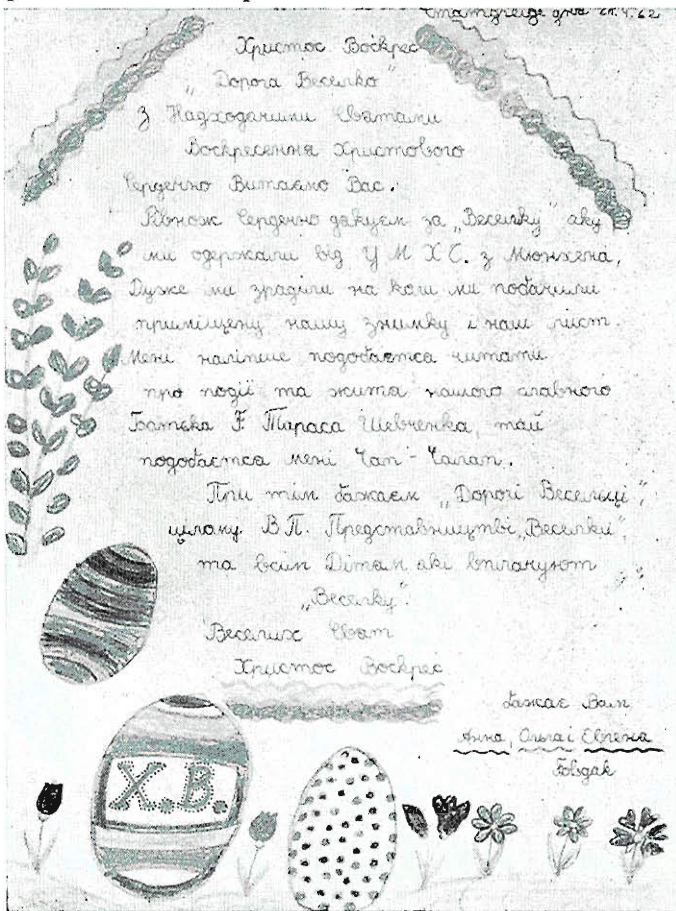 дня 21.4.62
Христос Воскрес
„Дорога Веселко"
З Надходячими Святами
Воскресення Христового
Сердечно Витаємо Вас.
Рівнож Сердечно дякуєм за „Веселку" яку
ми одержали від У М Х С. з Мюнхена,
Дуже ми зраділи на коли ми побачили
приміщену нашу знимку і наш лист.
Мені наліпше подобаєтса читати
про події та життя нашого славного
Батька Т. Тараса Шевченка, тай
подобаєтса мені Чап-Чалап.
При тім бажаєм „Дорогі Веселці",
цілому В.П. Представництві „Веселки",
та всім Дітям які виплачуют
„Веселку".
Веселих Свят
Христос Воскрес
бажає Вам
Анна, Ольга і Євгена
Х.В.